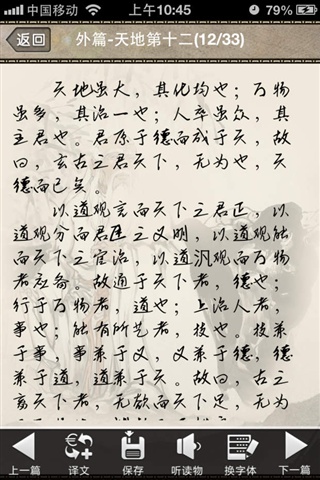 中国移动 上午10:45 79%
返回 外篇-天地第十二(12/33)
天地虽大，其化均也；万物
虽多，其治一也；人卒虽众，其
主君也。君原于德而成于天，故
曰，玄古之君天下，无为也，天
德而已矣。
以道观言而天下之君正，以
道观分而君臣之义明，以道观能
而天下之官治，以道汎观而万物
者应备。故通于天下者，德也；
行于万物者，道也；上治人者，
事也；能有所艺者，技也。技兼
于事，事兼于义，义兼于德，德兼
于道，道兼于天。故曰，古之
畜天下者，无欲而天下足，无为
上一篇 译文 保存 听读物 换字体 下一篇